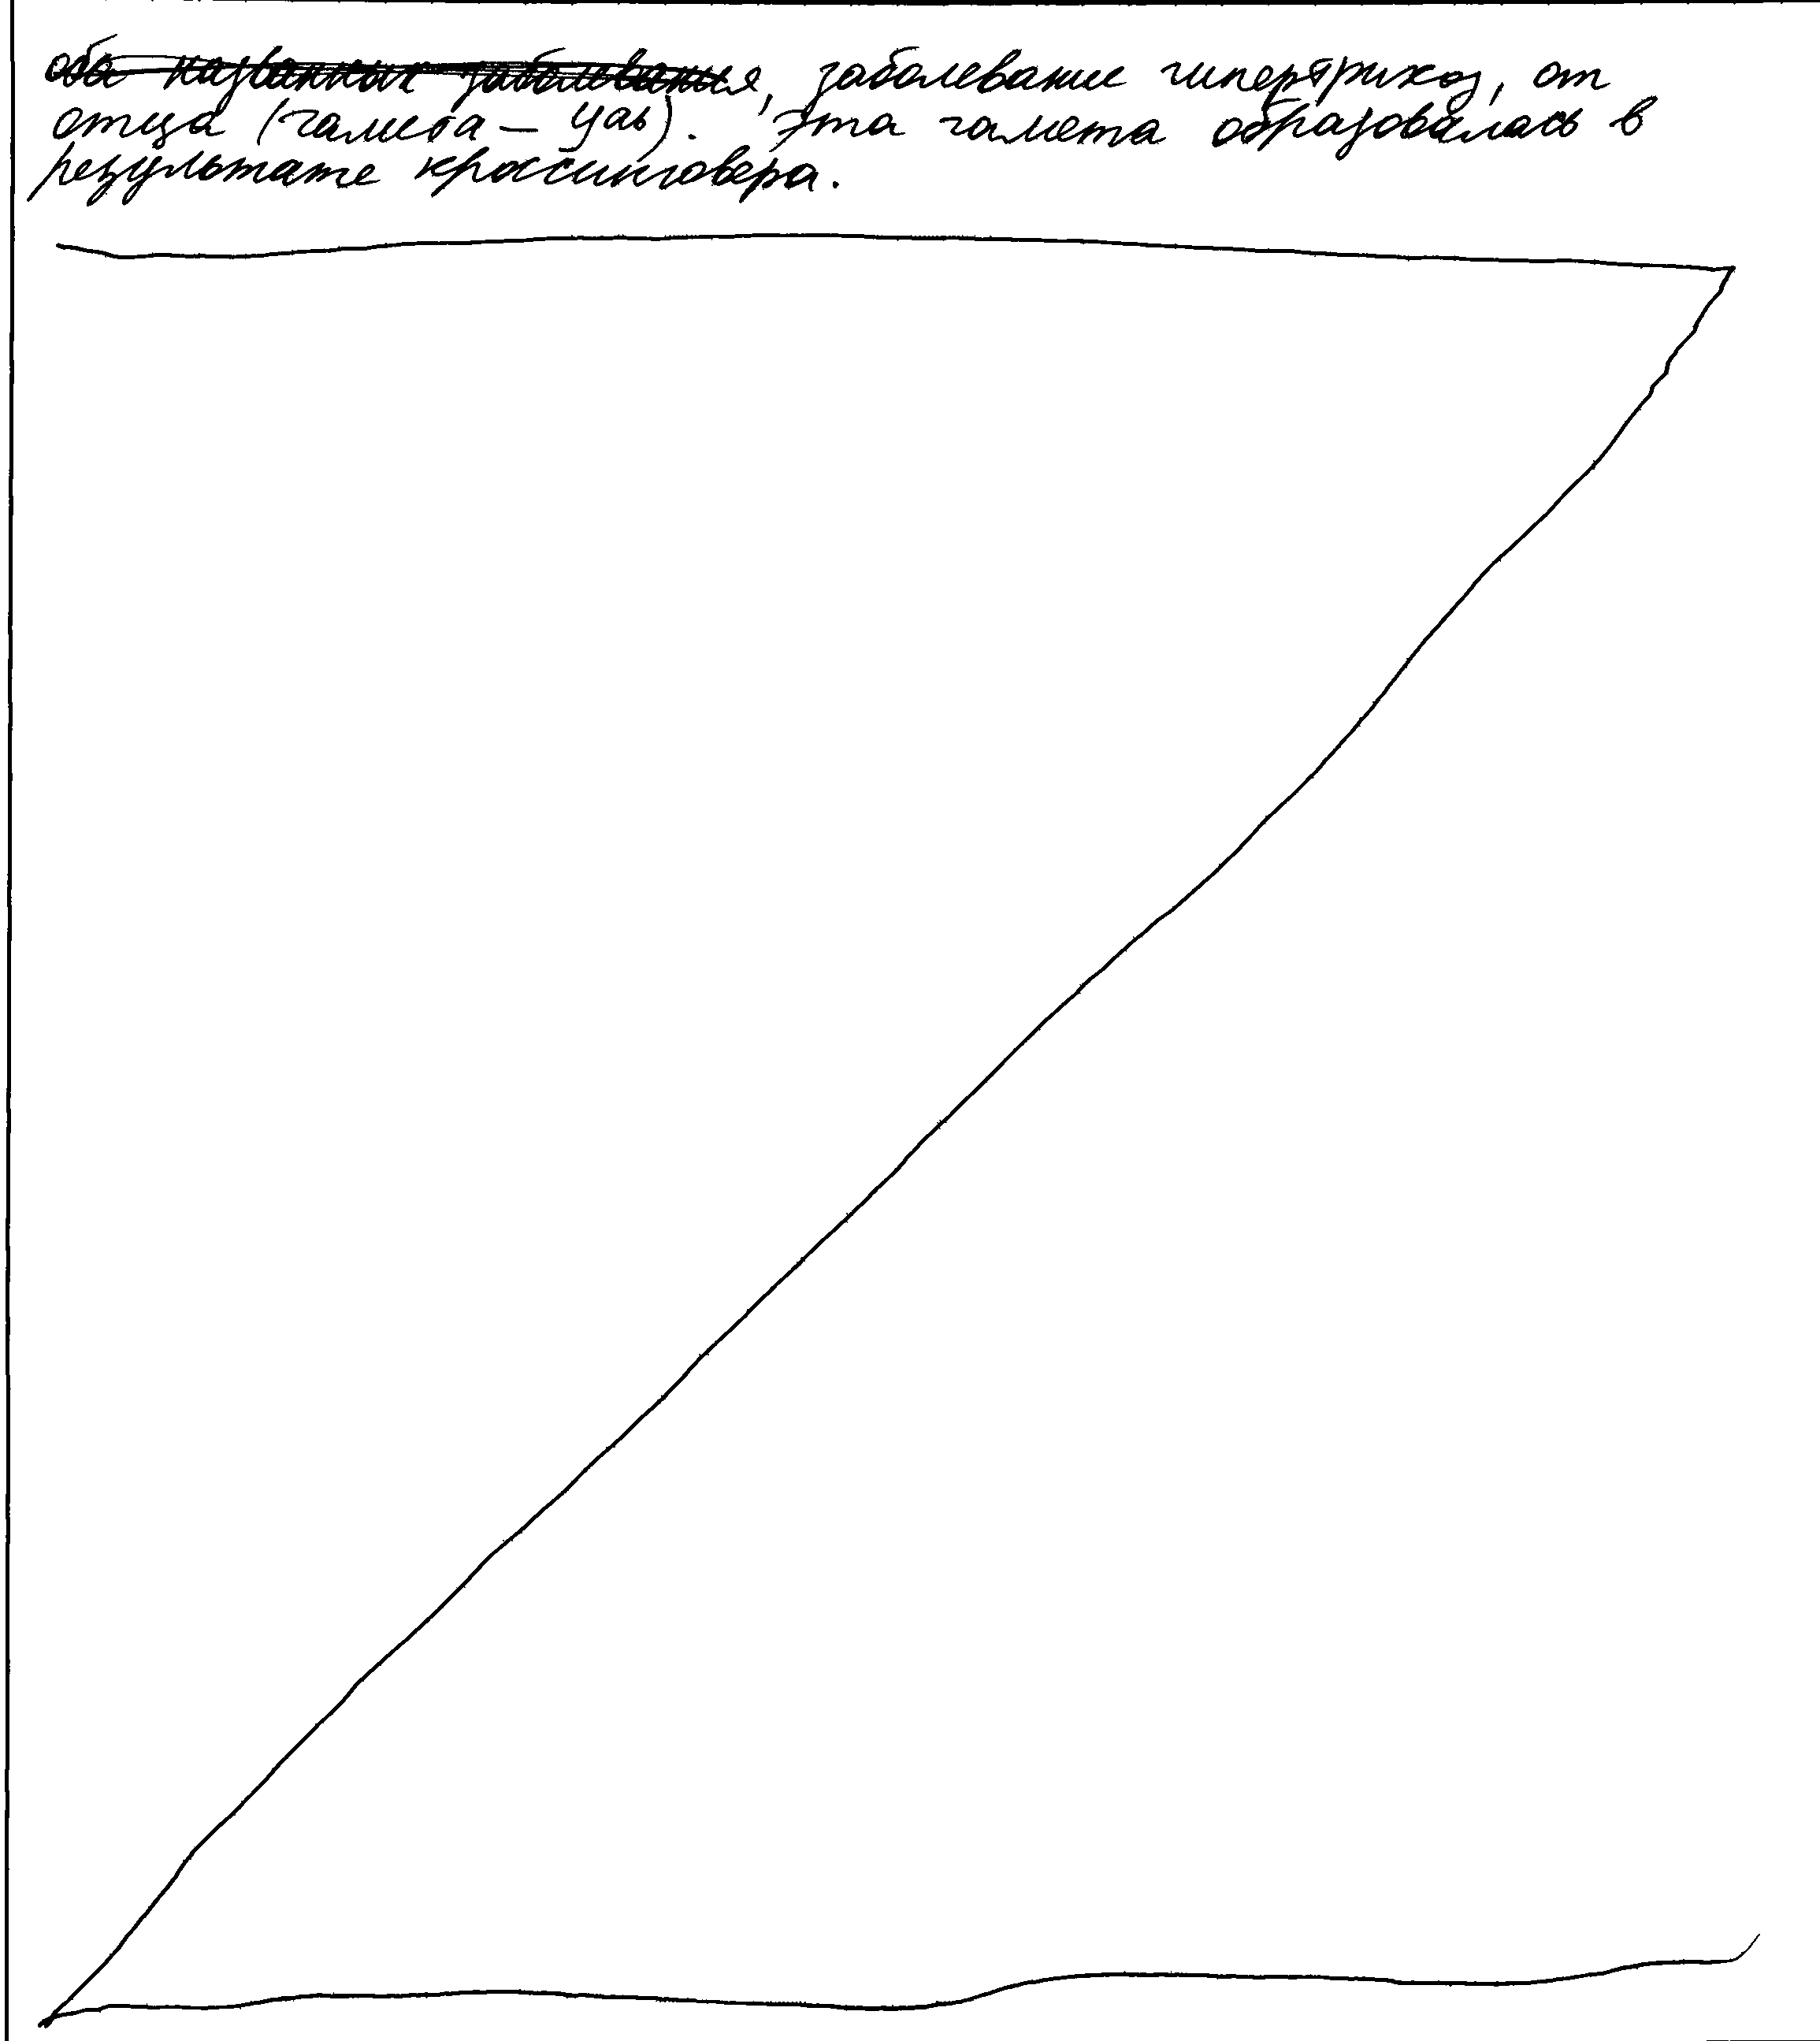 оба названных заболевания, заболевание гипертрихоз, от
отца (гамета – Yаb). Эта гамета образовалась в
результате кроссинговера.